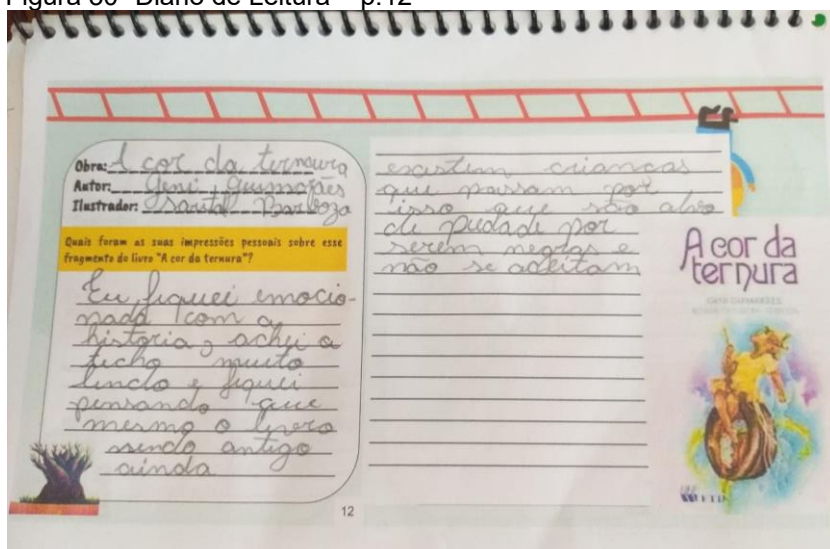 Figura 86- Diário de Leitura – p.12
Obra: A cor da ternura
Autor: Geni Guimarães
Ilustrador: Santal Barboza
Quais foram as suas impressões pessoais sobre esse
fragmento do livro "A cor da ternura"?
Eu fiquei emocio-
nada com a
historia, achei o
ticho muito
lindo e fiquei
pensando que
mesmo o livro
sendo antigo
ainda
12
existem crianças
que passam por
isso que são alvo
de piedade por
serem negras e
não se aceitam
A cor da
ternura
GENI GUIMARÃES
FTD